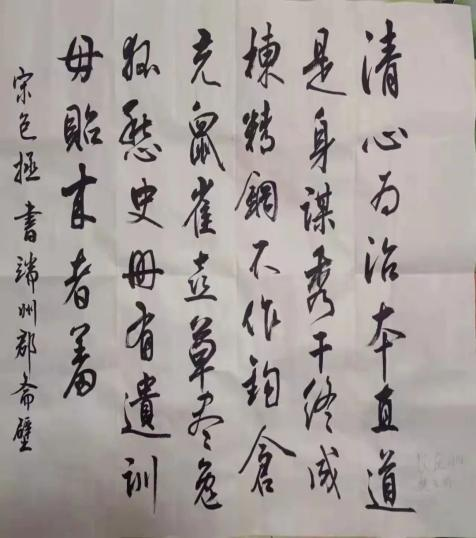 清心为治本直道
是身謀秀干終成
棟精鋼不作鈎倉
充鼠雀喜草尽兔
狐愁史冊有遺訓
毋貽来者羞
宋包拯書端州郡斋壁